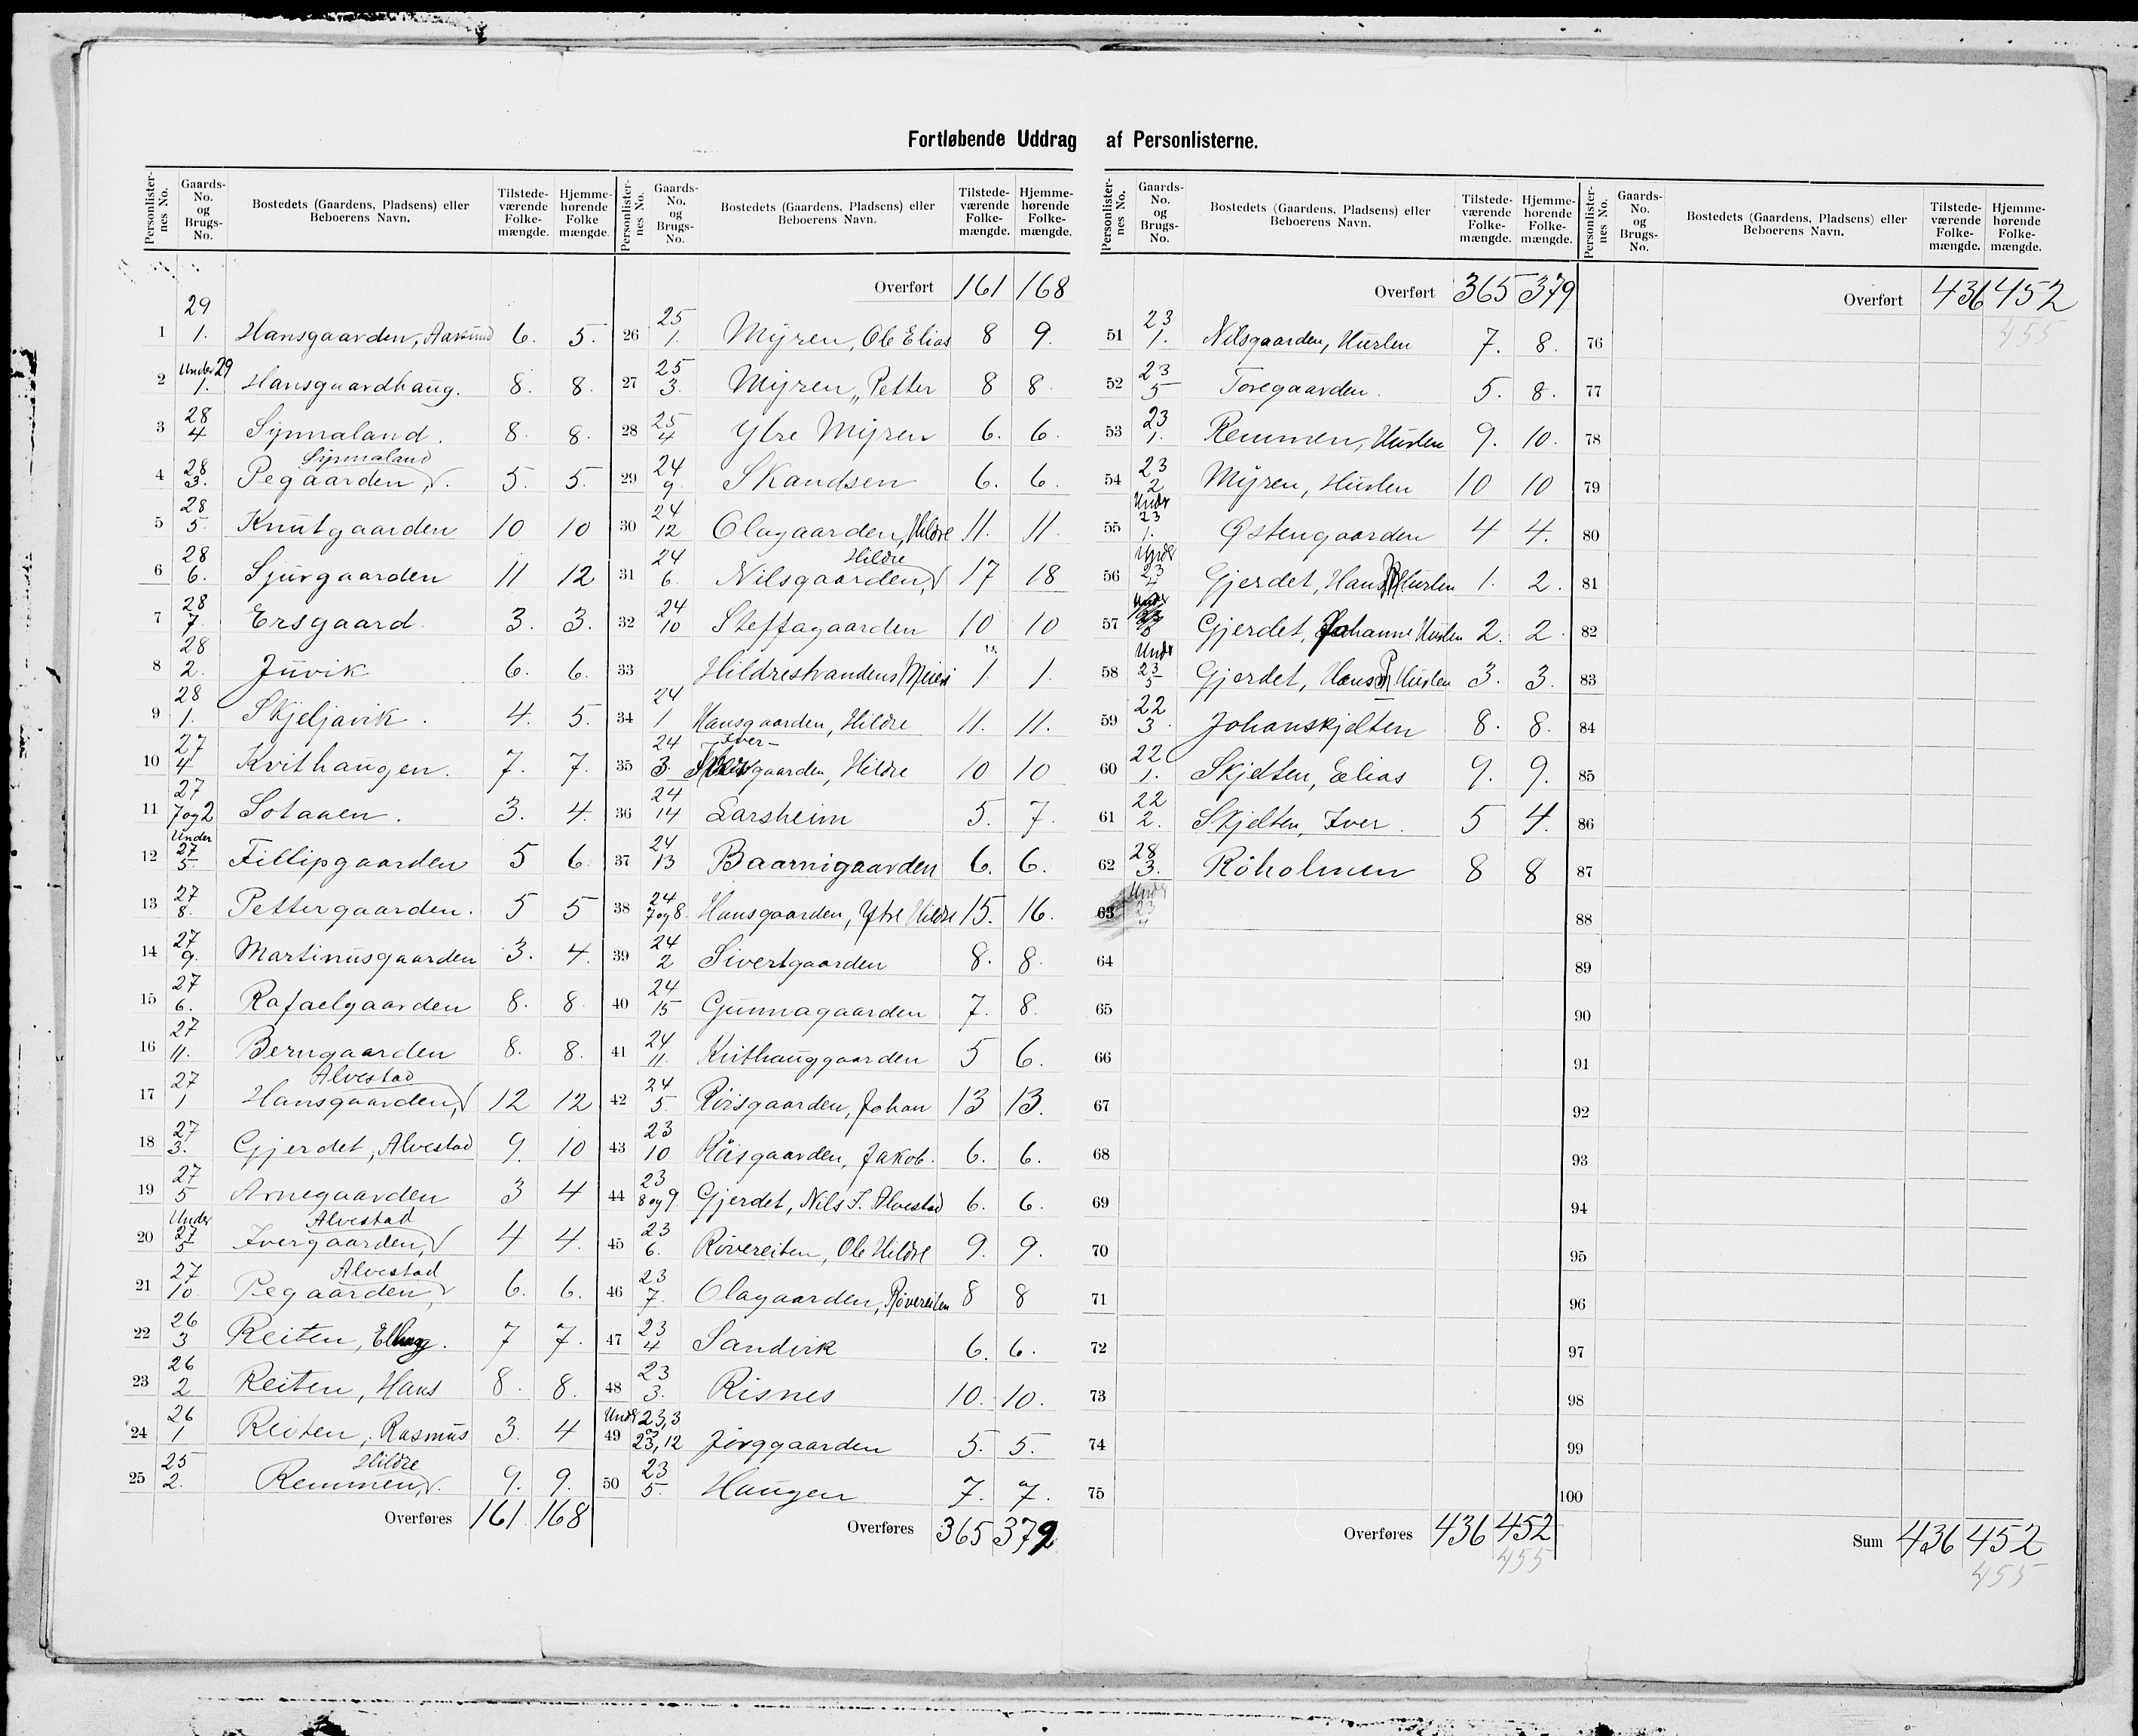 Fortløbende Uddrag af Personlisterne.
Personlister-nes No. Gaards-No. og Brugs-No. Bostedets (Gaardens, Pladsens) eller Beboerens Navn. Tilstede-værende Folke-mængde. Hjemme-hørende Folke mængde.
1 29 1. Hansgaarden, 6. 5.
2 Under 29 1. Hansgaardhaug. 8. 8.
3 28 4 Synnaland. 8. 8.
4 28 3. Pegaarden, Synnaland 5. 5.
5 28 5. Knutgaarden 10 10
6 28 6. Sjurgaarden 11 12
7 28 7. Ersgaard. 3. 3.
8 28 2. Juvik 6. 6.
9 28 1. Skjeljavik. 4. 5.
10 27 4 Kvithaugen. 7. 7.
11 27 7og2 Sotaaen. 3. 4.
12 Under 27 5. Fillipgaarden 5 6
13 27 8. Pettergaarden. 5 5
14 27 9. Martinusgaarden 3. 4.
15 27 6. Rafaelgaarden 8. 8
16 27 11. Berngaarden 8. 8.
17 27 1 Hansgaarden, Alvestad 12 12
18 27 3. Gjerdet, Alvestad 9. 10
19 27 5 Arnegaarden 3 4
20 Under 27 5 Ivergaarden, Alvestad 4 4.
21 27 10 Pegaarden, Alvestad 6. 6.
22 26 3 Reiten, Elling. 7 7.
23 26 2 Reiten, Hans 8. 8.
24 26 1 Reiten, Rasmus 3. 4
25 25 2. Remmen, Hildre 9. 9.
Overføres 161 168
Personlister-nes No. Gaards-No. og Brugs-No. Bostedets (Gaardens, Pladsens) eller Beboerens Navn. Tilstede-værende Folke-mængde. Hjemme-hørende Folke-mængde.
Overført 161 168
26 25 1. Myren, Ole Elias 8 9.
27 25 3. Myren, Petter 8 8.
28 25 4 Ytre Myren 6. 6.
29 24 9. Skandsen 6. 6.
30 24 12 Olagaarden, Hildre 11. 11.
31 24 6. Nilsgaarden, Hildre 17 18
32 24 10 Steffagaarden 10 10
33 Hildrestrandens Meieri 1. 1.
34 24 1 Hansgaarden, Hildre 11. 11.
35 24 3. Iver-gaarden, Hildre 10 10
36 24 14 Larsheim 5. 7.
37 24 13 Baarnigaarden 6. 6.
38 24 7og8. Hansgaarden, Ytre Hildre 15. 16.
39 24 2 Sivertgaarden 8. 8.
40 24 15 Gunnagaarden 7. 8.
41 24 11. Kvithauggaarden 5 6.
42 24 5. Röisgaarden, Johan 13 13.
43 23 10 Röisgaarden, Jakob. 6. 6.
44 23 8 og 9. Gjerdet, Nils J. Alvestad 6. 6.
45 23 6. Rövereiten, Ole Hildre 9. 9.
46 23 7. Olagaarden, Rövereiten 8 8
47 23 4 Sandvik 6. 6.
48 23 3. Risnes 10. 10.
49 Under 23,3 og 23,12 Jörggaarden 5. 5.
50 23 5. Haugen 7. 7.
Overføres 365 379
Personlister-nes No. Gaards-No. og Brugs-No. Bostedets (Gaardens, Pladsens) eller Beboerens Navn. Tilstede-værende Folke-mængde. Hjemme-hørende Folke-mængde.
Overført 365 379
51 23 1. Nilsgaarden, Hurlen 7. 8.
52 23 5 Toregaarden. 5. 8.
53 23 1. Remmen, Hurlen 9. 10.
54 23 2 Myren, Hurlen 10 10
55 Under 23 1. Östengaarden 4 4.
56 Under 23 4 Gjerdet, Hans Hurlen 1. 2.
57 Under Gjerdet, Johanne Hurlen 2. 2.
58 Under 23 5 Gjerdet, Hans Hurlen 3. 3.
59 22 3. Johanskjelten 8. 8.
60 22 1. Skjelten, Elias 9. 9.
61 22 2. Skjelten, Iver. 5 4.
62 28 3. Röholmen 8 8
63 Under 23 4
64
65
66
67
68
69
70
71
72
73
74
75
Overføres 436 452
455
Personlister-nes No. Gaards-No. og Brugs-No. Bostedets (Gaardens, Pladsens) eller Beboerens Navn. Tilstede-værende Folke-mængde. Hjemme-hørende Folke-mængde.
Overført 436 452
455
76
77
78
79
80
81
82
83
84
85
86
87
88
89
90
91
92
93
94
95
96
97
98
99
100
Sum 436 452
455